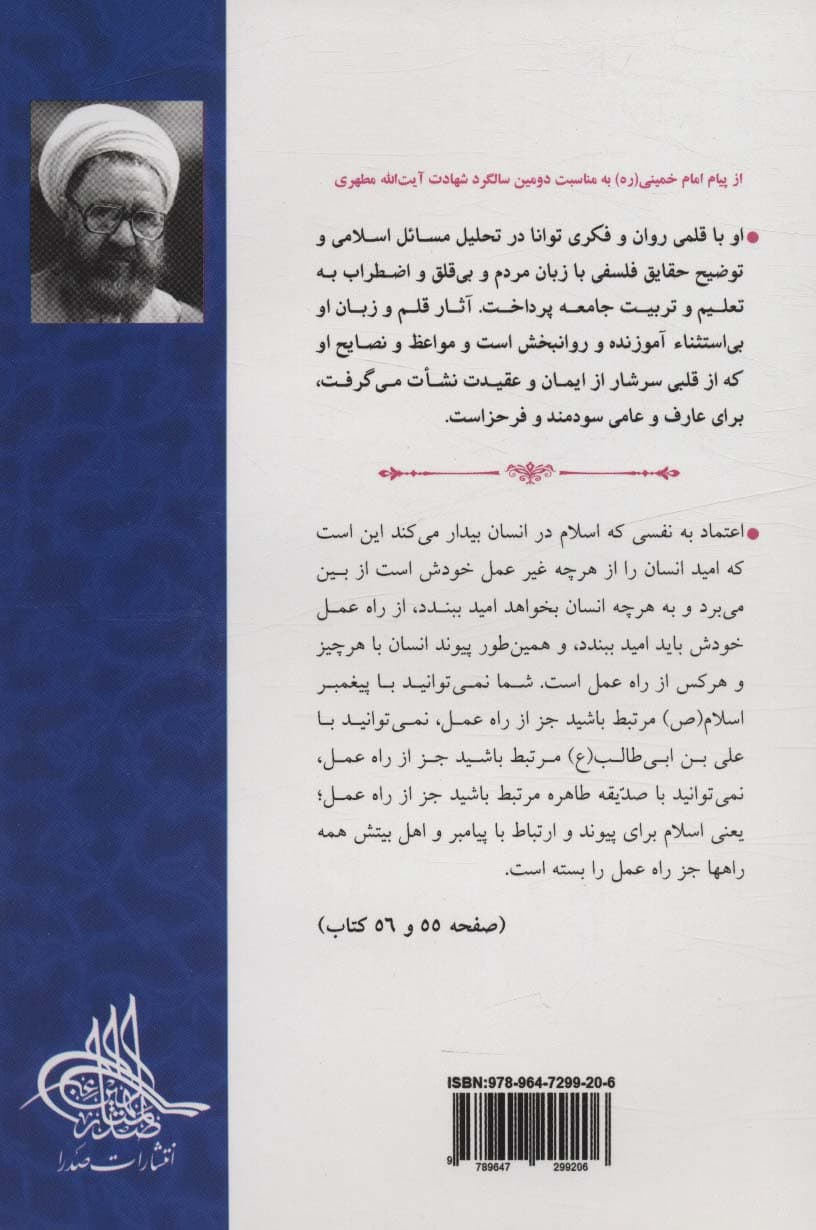 از پیام امام خمینی(ره) به مناسبت دومین سالگرد شهادت آیت‌الله مطهری
● او با قلمی روان و فکری توانا در تحلیل مسائل اسلامی و
توضیح حقایق فلسفی با زبان مردم و بی‌قلق و اضطراب به
تعلیم و تربیت جامعه پرداخت. آثار قلم و زبان او
بی‌استثناء آموزنده و روانبخش است و مواعظ و نصایح او
که از قلبی سرشار از ایمان و عقیدت نشأت می‌گرفت،
برای عارف و عامی سودمند و فرحزاست.
● اعتماد به نفسی که اسلام در انسان بیدار می‌کند این است
که امید انسان را از هرچه غیر عمل خودش است از بین
می‌برد و به هرچه انسان بخواهد امید ببندد، از راه عمل
خودش باید امید ببندد، و همین‌طور پیوند انسان با هرچیز
و هرکس از راه عمل است. شما نمی‌توانید با پیغمبر
اسلام(ص) مرتبط باشید جز از راه عمل، نمی‌توانید با
علی بن ابی‌طالب(ع) مرتبط باشید جز از راه عمل،
نمی‌توانید با صدّیقه طاهره مرتبط باشید جز از راه عمل؛
یعنی اسلام برای پیوند و ارتباط با پیامبر و اهل بیتش همه
راهها جز راه عمل را بسته است.
(صفحه ۵۵ و ۵۶ کتاب)
ISBN:978-964-7299-20-6
9 789647 299206
انتشارات صدرا